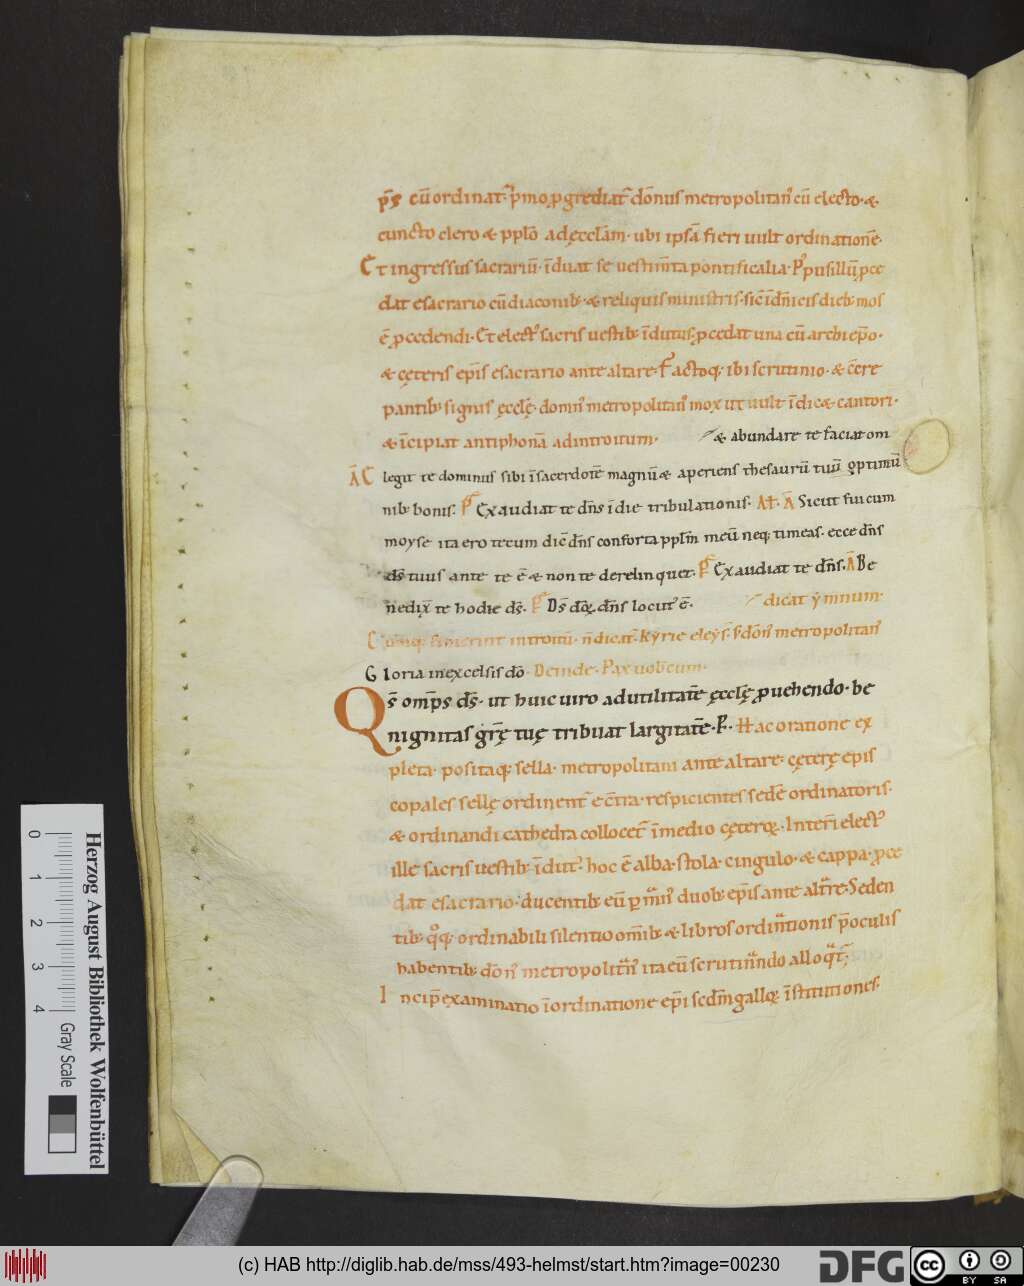 p̄s cū ordinat᷑ p̄mo ꝓgrediat᷑ dōnus metropolitanꝰ cū electo · &
cuncto clero & pplo᷑ ad ęccl̄am · ubi ipsā fieri uult ordinationē ·
Et ingressus sacrariū · īduat se uestim̄ta pontificalia · Pꝰ pusillū ꝓce
dat e sacrario cū diaconib; · & reliquis ministris · sic̄ ī dn̄icis dieb; mos
ē ꝓcedendi · Et electꝰ sacris uestib; īdutus ꝓcedat una cū archiep̄o ·
& cęteris ep̄is e sacrario ante altare · Factoq; ibi scrutinio · & c̄cre
pantib; signis ęccl̄ę · domnꝰ metropolitanꝰ mox ut uult īdicæ cantori ·
& īcipiat antiphonā ad introitum · & abundare te faciat om
Ā E legit te dominus sibi ī sacerdotē magnū & aperiens thesaurū tuū optimū
nib; bonis · P᷑ Exaudiat te dn̄s ī die tribulationis · Al̄ · Ā Sicut fui cum
moyse ita ero tecum dic̄ dn̄s conforta ppl̄m meū neq; timeas · ecce dn̄s
ds̄ tuus ante te ē & non te derelinquet · P᷑ Exaudiat te dn̄s · Ā Be
nedix̄ te hodie ds̄ · P᷑ Ds̄ deoꝝ dn̄s locutꝰ ē · dicat ymnum ·
introitū · n̄ dicat᷑ · Kyrie eleys̄ · s; dōnꝰ metropolitanꝰ
Gloria in excelsis dō · Deinde · Pax uobcum ·
Qs̄ omp̄s ds̄ · ut huic uiro ad utilitatē ęccl̄ę ꝓuehendo · be
nignitas gr̄ę tuę tribuat largitatē · P · Hac oratione ex
pleta · positaq; sella · metropolitani ante altare · cęterę epis
copales sellę ordinent᷑ e c̄tra · respicientes sedē ordinatoris ·
& ordinandi cathedra collocet᷑ ī medio cęterꝝ · Interī electꝰ
ille sacris uestib; īdutꝰ · hoc ē alba · stola · cingulo · & cappa · ꝓce
dat e sacrario · ducentib; eū duob; ep̄is ante altr̄e · Seden
tib; ordinabili silentio om̄ib; & libros ordin̄tionis p̄ oculis
habentib; dōnꝰ metropolit̄nꝰ ita eū scrutin̄ndo alloq̄t᷑;
Incip̄ examinatio ī ordinatione ep̄i scdm̄ gallos īstitutiones ·
0 1 2 3 4
Gray Scale
Herzog August Bibliothek Wolfenbüttel
(c) HAB http://diglib.hab.de/mss/493-helmst/start.htm?image=00230
DFG
cc BY SA